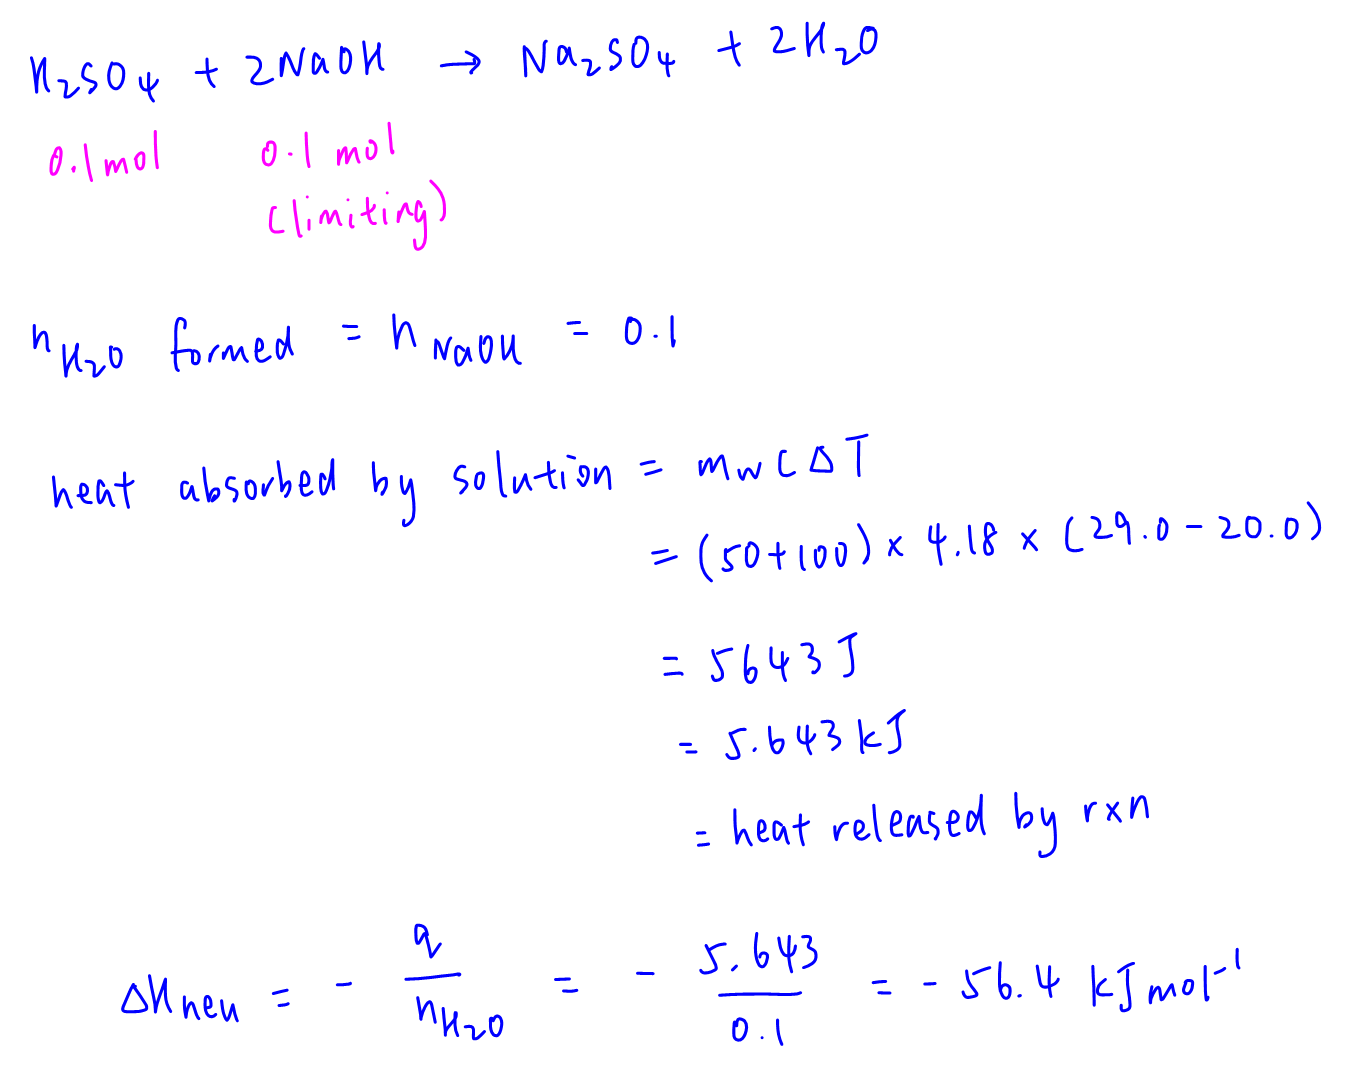 H₂SO₄ + 2NaOH → Na₂SO₄ + 2H₂O
0.1mol 0.1 mol
(limiting)
n H₂O formed = n NaOH = 0.1
heat absorbed by solution = mw c Δ T
= (50+100) × 4.18 × (29.0 - 20.0)
= 5643 J
= 5.643 kJ
= heat released by rxn
ΔHneu = - q/nH₂O = - 5.643/0.1 = - 56.4 kJ mol⁻¹